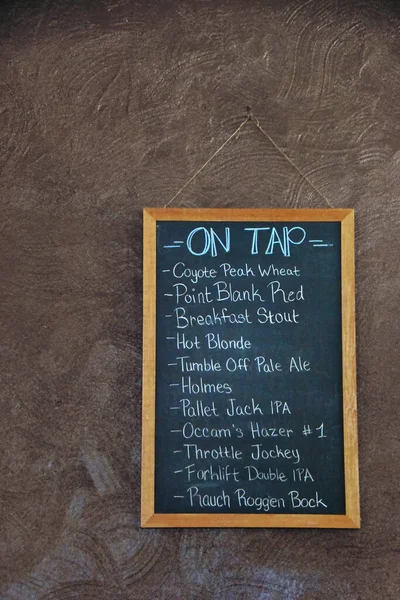 - ON TAP =
- Coyote Peak Wheat
- Point Blank Red
- Breakfast Stout
- Hot Blonde
- Tumble Off Pale Ale
- Holmes
- Pallet Jack IPA
- Occam's Hazer #1
- Throttle Jockey
- Forklift Double IPA
- Rauch Roggen Bock